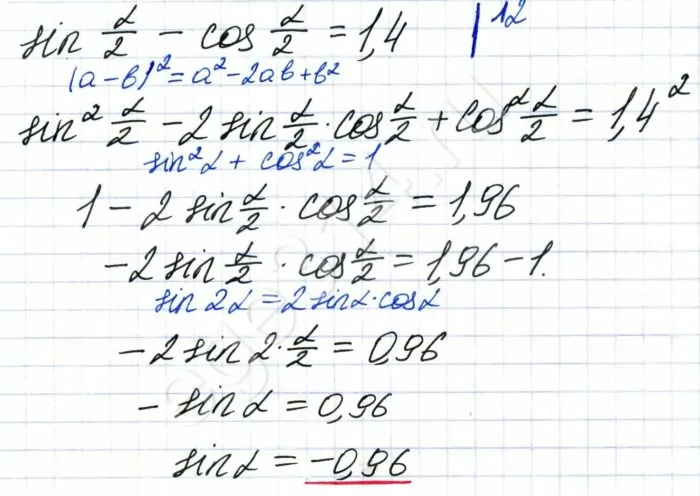 sin α/2 − cos α/2 = 1,4 |²
(a−b)² = a²−2ab+b²
sin² α/2 − 2 sin α/2 · cos α/2 + cos² α/2 = 1,4²
sin²α + cos²α = 1
1 − 2 sin α/2 · cos α/2 = 1,96
−2 sin α/2 · cos α/2 = 1,96 − 1.
sin 2α = 2 sinα · cosα
−2 sin 2 · α/2 = 0,96
− sin α = 0,96
sin α = −0,96